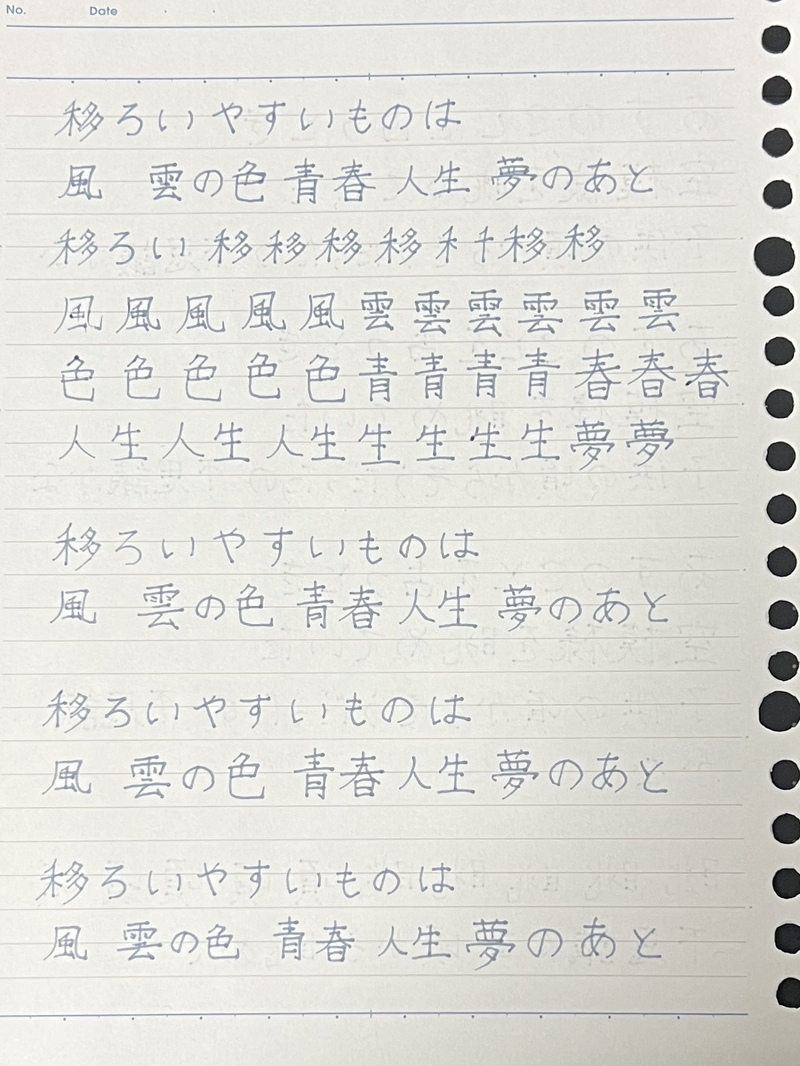 No. Date
移ろいやすいものは
風 雲の色 青春 人生 夢のあと
移ろい 移 移 移 移 禾 十 移 移
風 風 風 風 風 雲 雲 雲 雲 雲 雲
色 色 色 色 色 青 青 青 青 春 春 春
人 生 人 生 人 生 生 生 生 生 夢 夢
移ろいやすいものは
風 雲の色 青春 人生 夢のあと
移ろいやすいものは
風 雲の色 青春 人生 夢のあと
移ろいやすいものは
風 雲の色 青春 人生 夢のあと